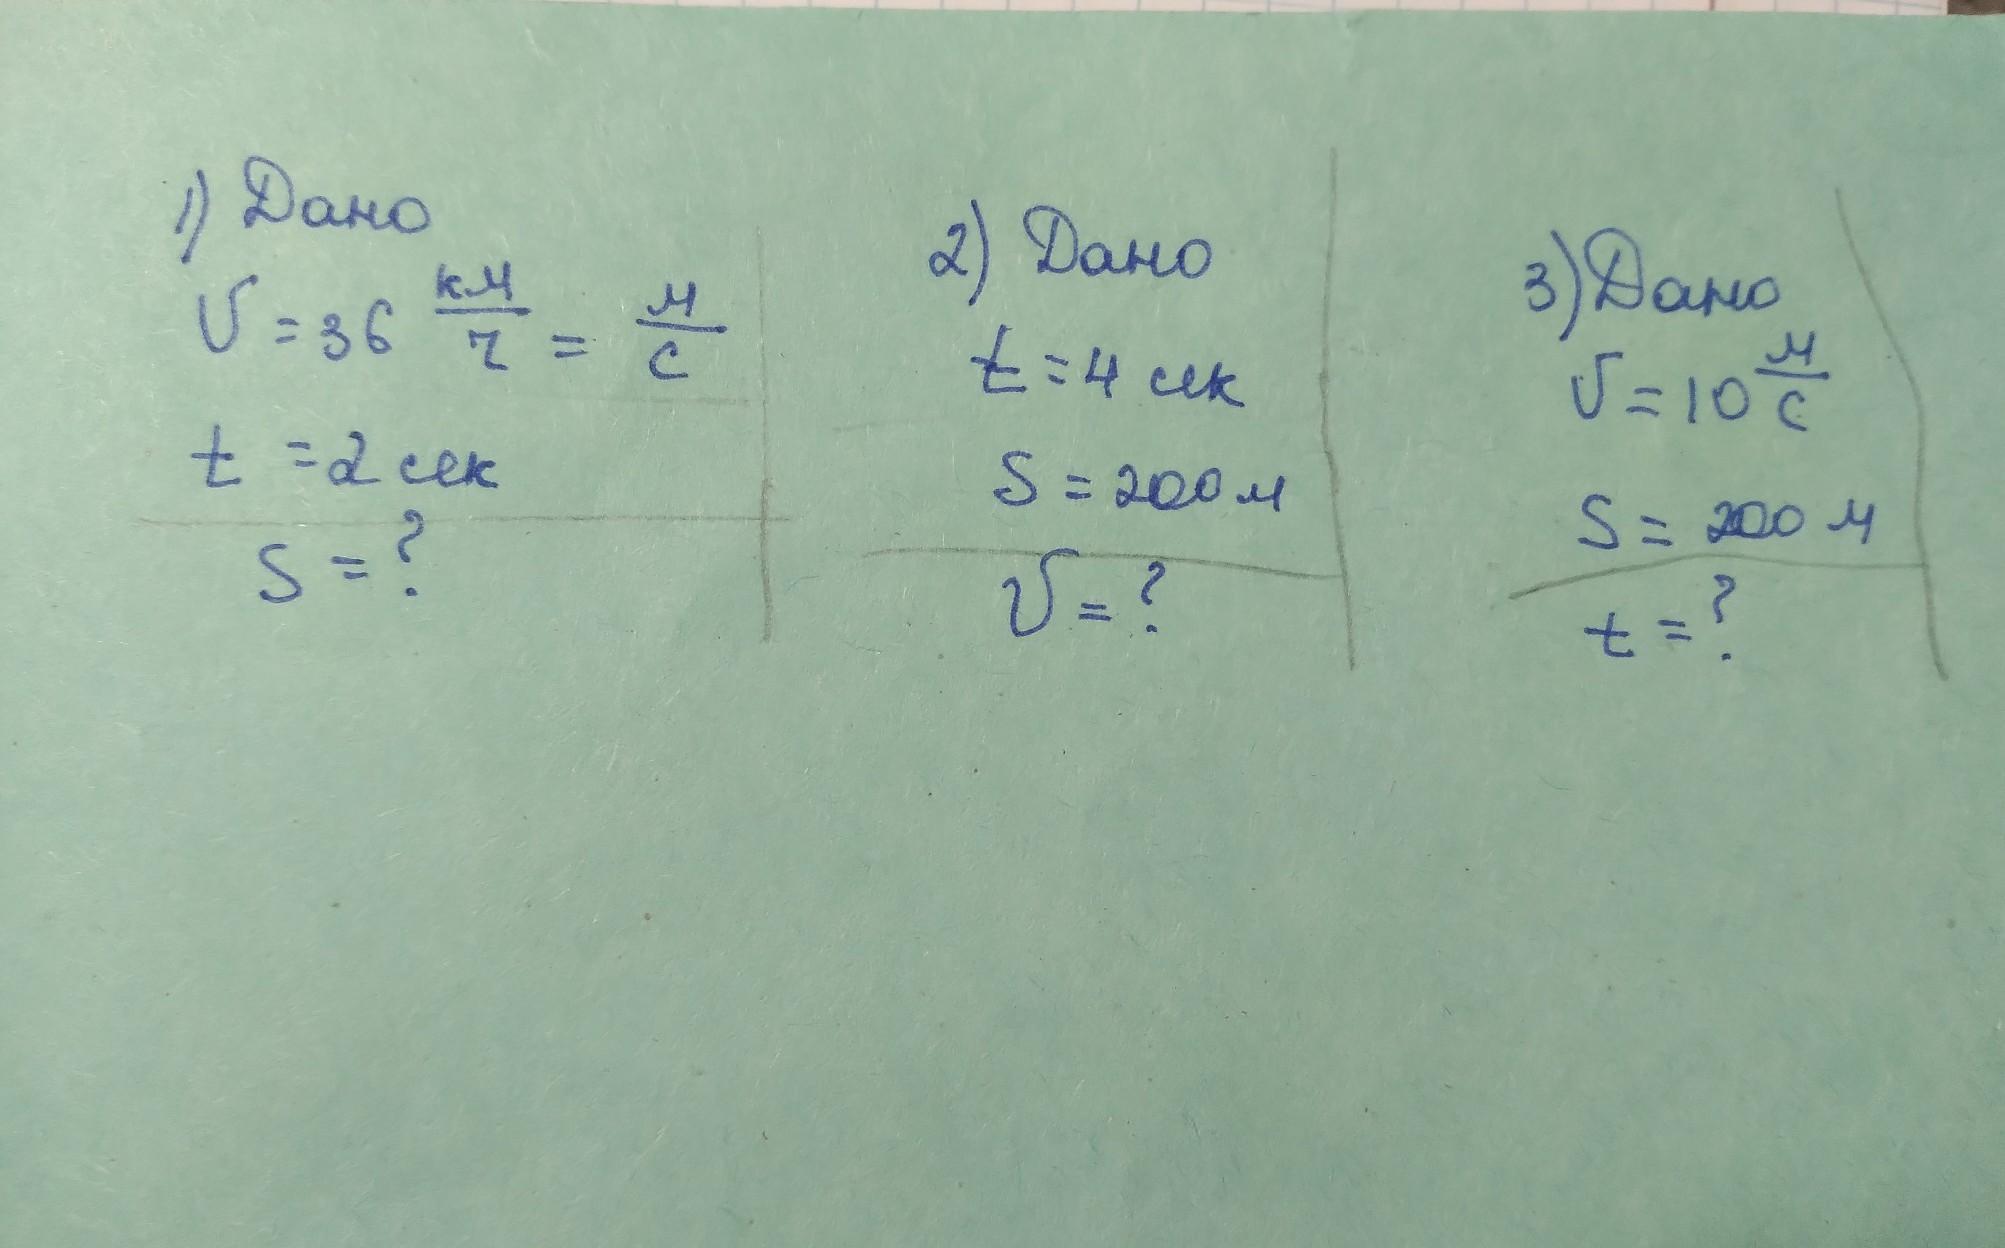 1) Дано
V = 36 км/ч = м/с
t = 2 сек
S = ?
2) Дано
t = 4 сек
S = 200 м
V = ?
3) Дано
V = 10 м/с
S = 200 м
t = ?